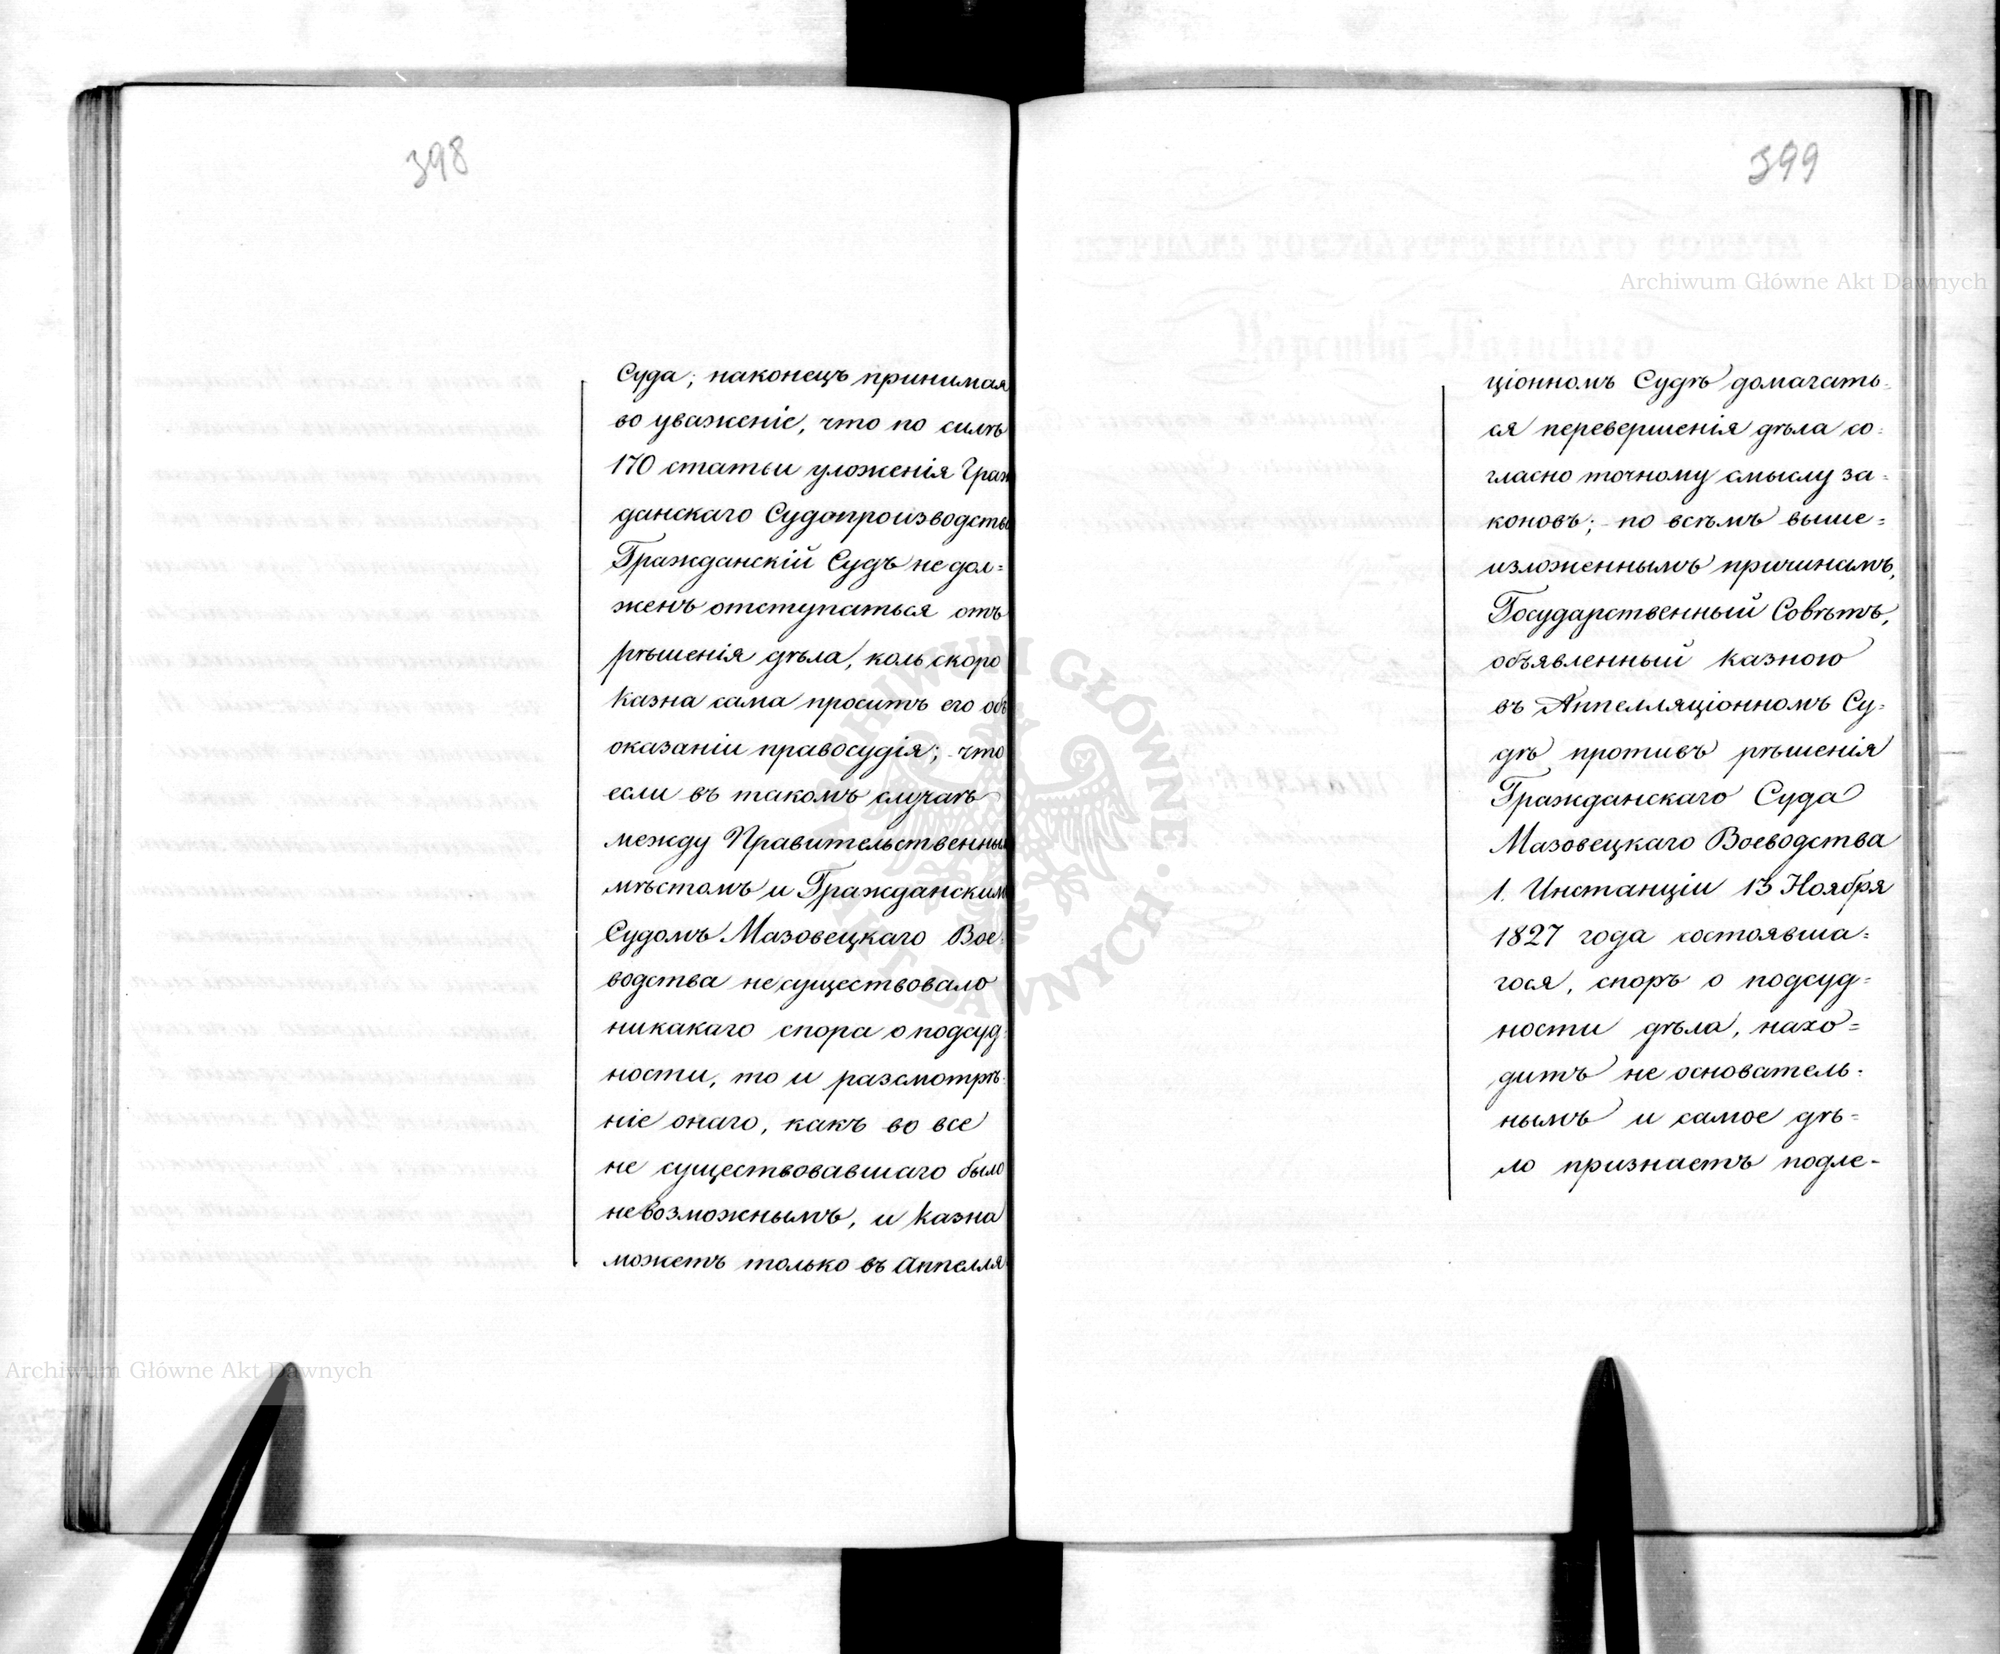 398
Суда; наконецъ принимая
во уваженіе, что по силѣ
170 статьи уложенія Граж
данскаго Судопроизводства
Гражданскій Судъ не дол=
женъ отступаться отъ
рѣшенія дѣла, коль скоро
казна сама проситъ его объ
оказаніи правосудія; что
если въ такомъ случаѣ
между Правительственнымъ
мѣстомъ и Гражданскимъ
Судомъ Мазовецкаго Вое=
водства не существовало
никакаго спора о подсуд=
ности, то и разсмотрѣ=
ніе онаго, какъ во все
не существовавшаго было
невозможнымъ, и казна
можетъ только въ Аппелля
399
ціонномъ Судѣ домагать=
ся перевершенія дѣла со=
гласно точному смыслу за=
коновъ; по всѣмъ выше=
изложеннымъ причинамъ,
Государственный Совѣтъ,
объявленный казною
въ Аппелляціонномъ Су=
дѣ противъ рѣшенія
Гражданскаго Суда
Мазовецкаго Воеводства
1. Инстанціи 13 Ноября
1827 года состоявша=
гося, споръ о подсуд=
ности дѣла, нахо=
дитъ не основатель=
нымъ и самое дѣ=
ло признаетъ подле-
Archiwum Główne Akt Dawnych
ARCHIWUM GŁÓWNE AKT DAWNYCH
Archiwum Główne Akt Dawnych